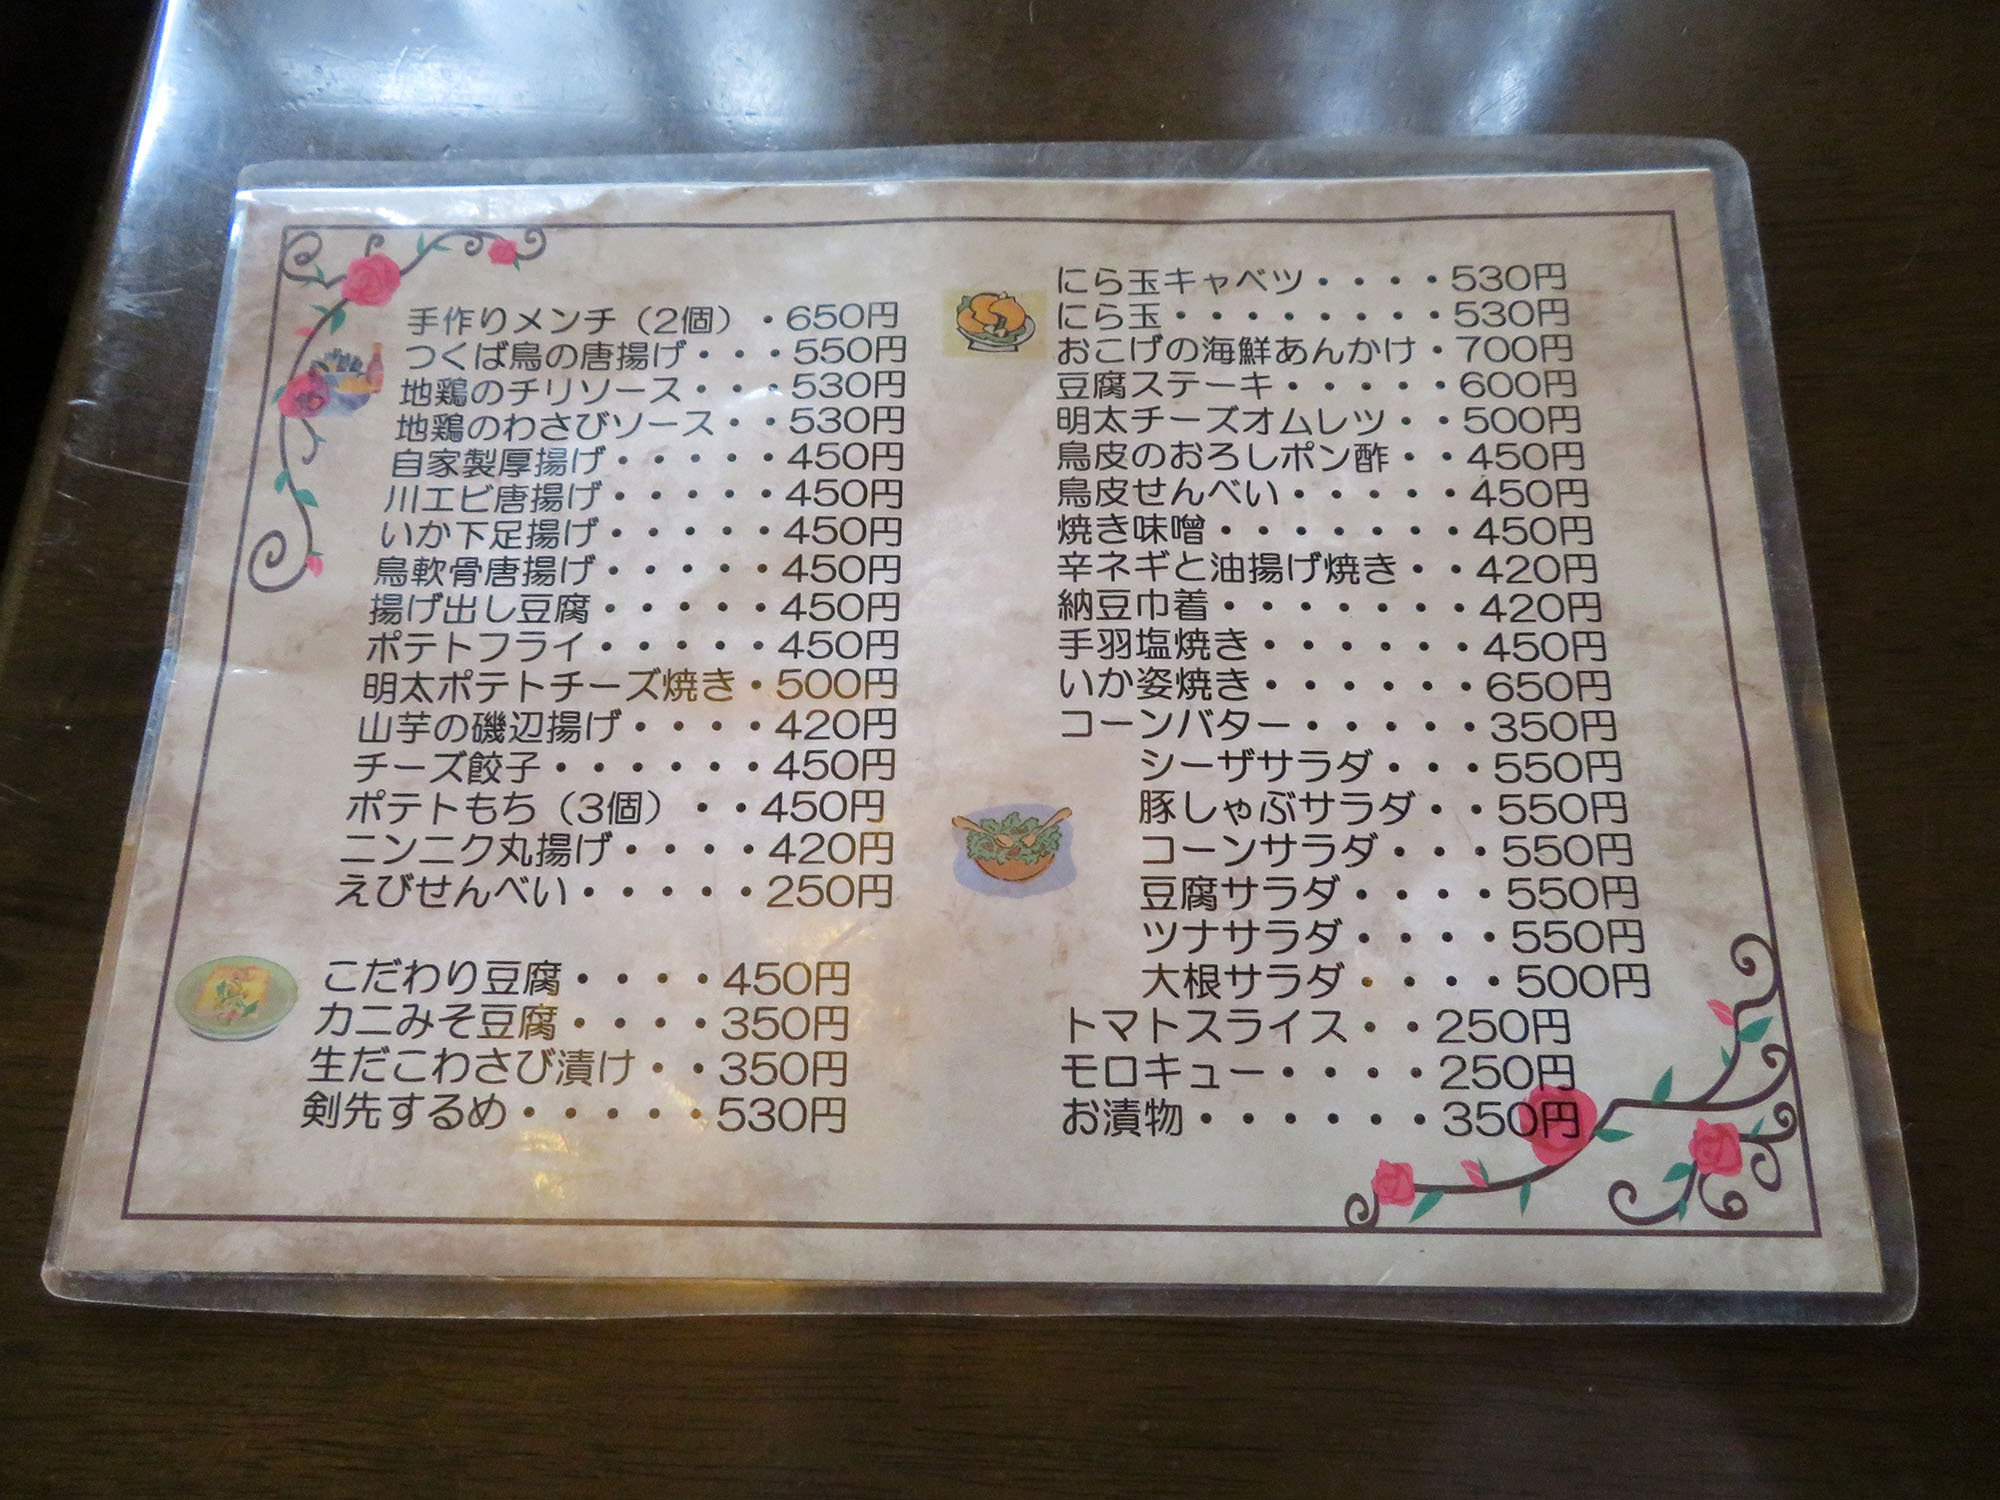 手作りメンチ（2個）・650円
つくば鳥の唐揚げ・・・550円
地鶏のチリソース・・・530円
地鶏のわさびソース・・530円
自家製厚揚げ・・・・・450円
川エビ唐揚げ・・・・・450円
いか下足揚げ・・・・・450円
鳥軟骨唐揚げ・・・・・450円
揚げ出し豆腐・・・・・450円
ポテトフライ・・・・・450円
明太ポテトチーズ焼き・500円
山芋の磯辺揚げ・・・・420円
チーズ餃子・・・・・・450円
ポテトもち（3個）・・450円
ニンニク丸揚げ・・・・420円
えびせんべい・・・・・250円
こだわり豆腐・・・・450円
カニみそ豆腐・・・・350円
生だこわさび漬け・・350円
剣先するめ・・・・・530円
にら玉キャベツ・・・・530円
にら玉・・・・・・・・530円
おこげの海鮮あんかけ・700円
豆腐ステーキ・・・・・600円
明太チーズオムレツ・・500円
鳥皮のおろしポン酢・・450円
鳥皮せんべい・・・・・450円
焼き味噌・・・・・・・450円
辛ネギと油揚げ焼き・・420円
納豆巾着・・・・・・・420円
手羽塩焼き・・・・・・450円
いか姿焼き・・・・・・650円
コーンバター・・・・・350円
シーザサラダ・・・550円
豚しゃぶサラダ・・550円
コーンサラダ・・・550円
豆腐サラダ・・・・550円
ツナサラダ・・・・550円
大根サラダ・・・・500円
トマトスライス・・250円
モロキュー・・・・250円
お漬物・・・・・・350円